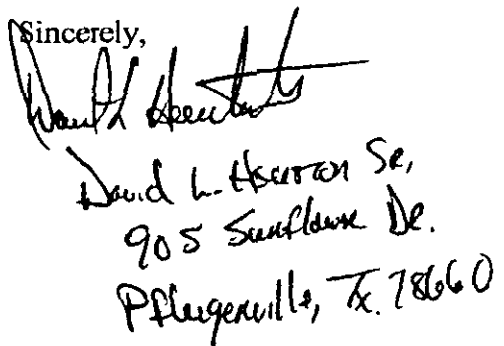 Sincerely,
David L.
David L. Sr.
905 Sunflower Dr.
Pflugerville, Tx. 78660